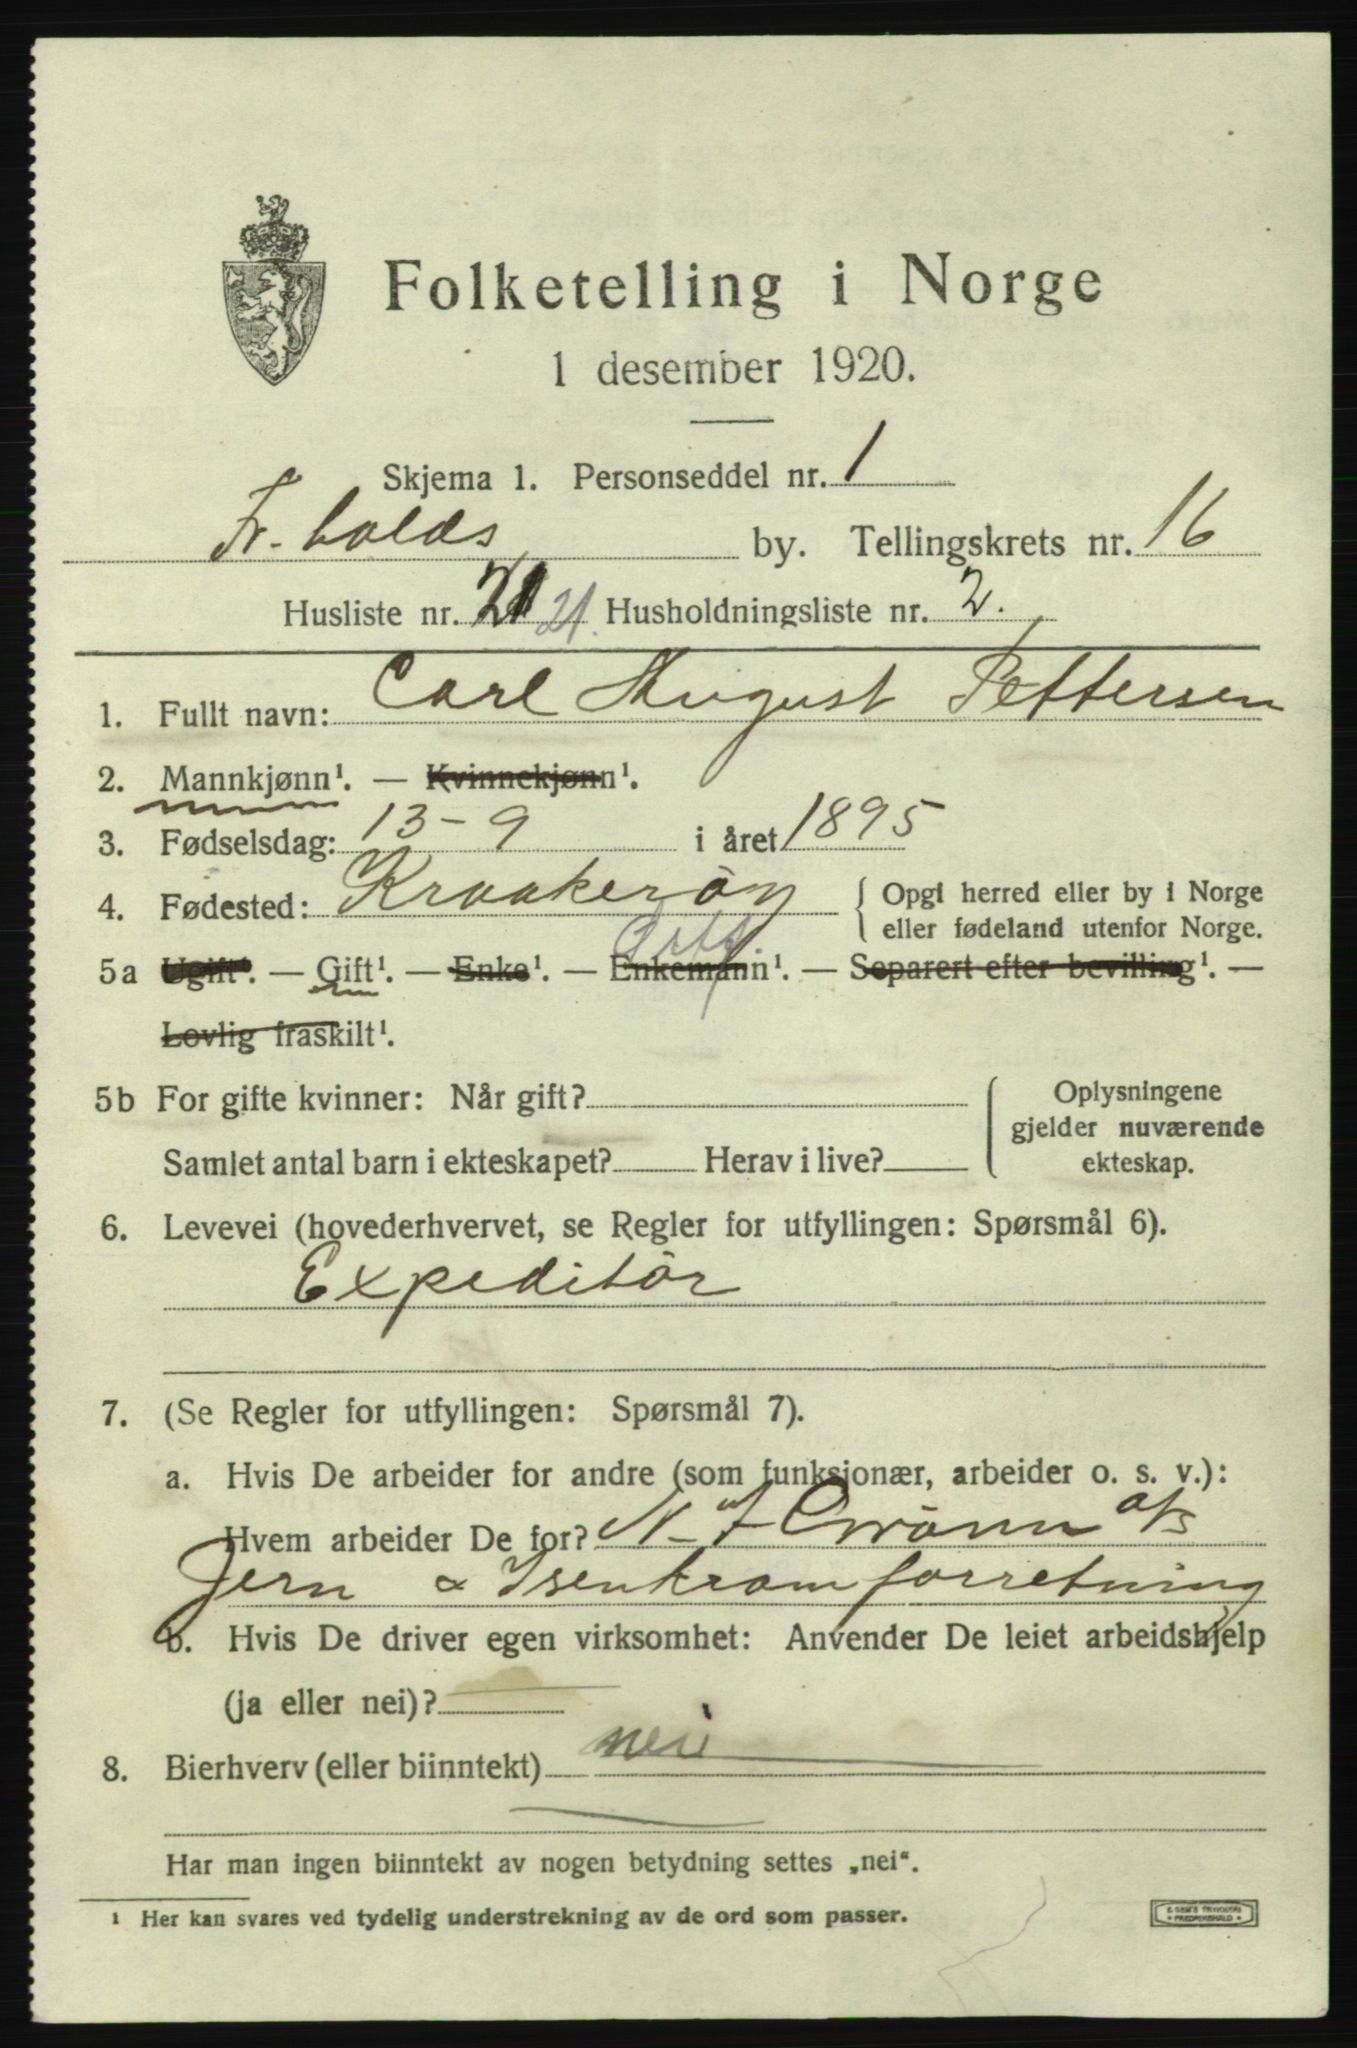 Folketelling i Norge
1 desember 1920.
Skjema 1. Personseddel nr. 1
Fr.halds by. Tellingskrets nr. 16
Husliste nr. 21 21. Husholdningsliste nr. 2.
1. Fullt navn: Carl August Pettersen
2. Mannkjønn¹. — Kvinnekjønn¹.
3. Fødselsdag: 13-9 i året 1895
4. Fødested: Kraakeröy { Opgi herred eller by i Norge
eller fødeland utenfor Norge.
Gift.
5a Ugift¹. — Gift¹. — Enke¹. — Enkemann¹. — Separert efter bevilling¹. —
Lovlig fraskilt¹.
5b For gifte kvinner: Når gift? { Oplysningene
gjelder nuværende
Samlet antal barn i ekteskapet? Herav i live? ekteskap.
6. Levevei (hovederhvervet, se Regler for utfyllingen: Spørsmål 6).
Expeditör
7. (Se Regler for utfyllingen: Spørsmål 7).
a. Hvis De arbeider for andre (som funksjonær, arbeider o. s. v.):
Hvem arbeider De for? N. A/s
Jern & Isenkramforretning
b. Hvis De driver egen virksomhet: Anvender De leiet arbeidshjelp
(ja eller nei)?
8. Bierhverv (eller biinntekt) nei
Har man ingen biinntekt av nogen betydning settes „nei“.
¹ Her kan svares ved tydelig understrekning av de ord som passer.
FREDRIKSHALD